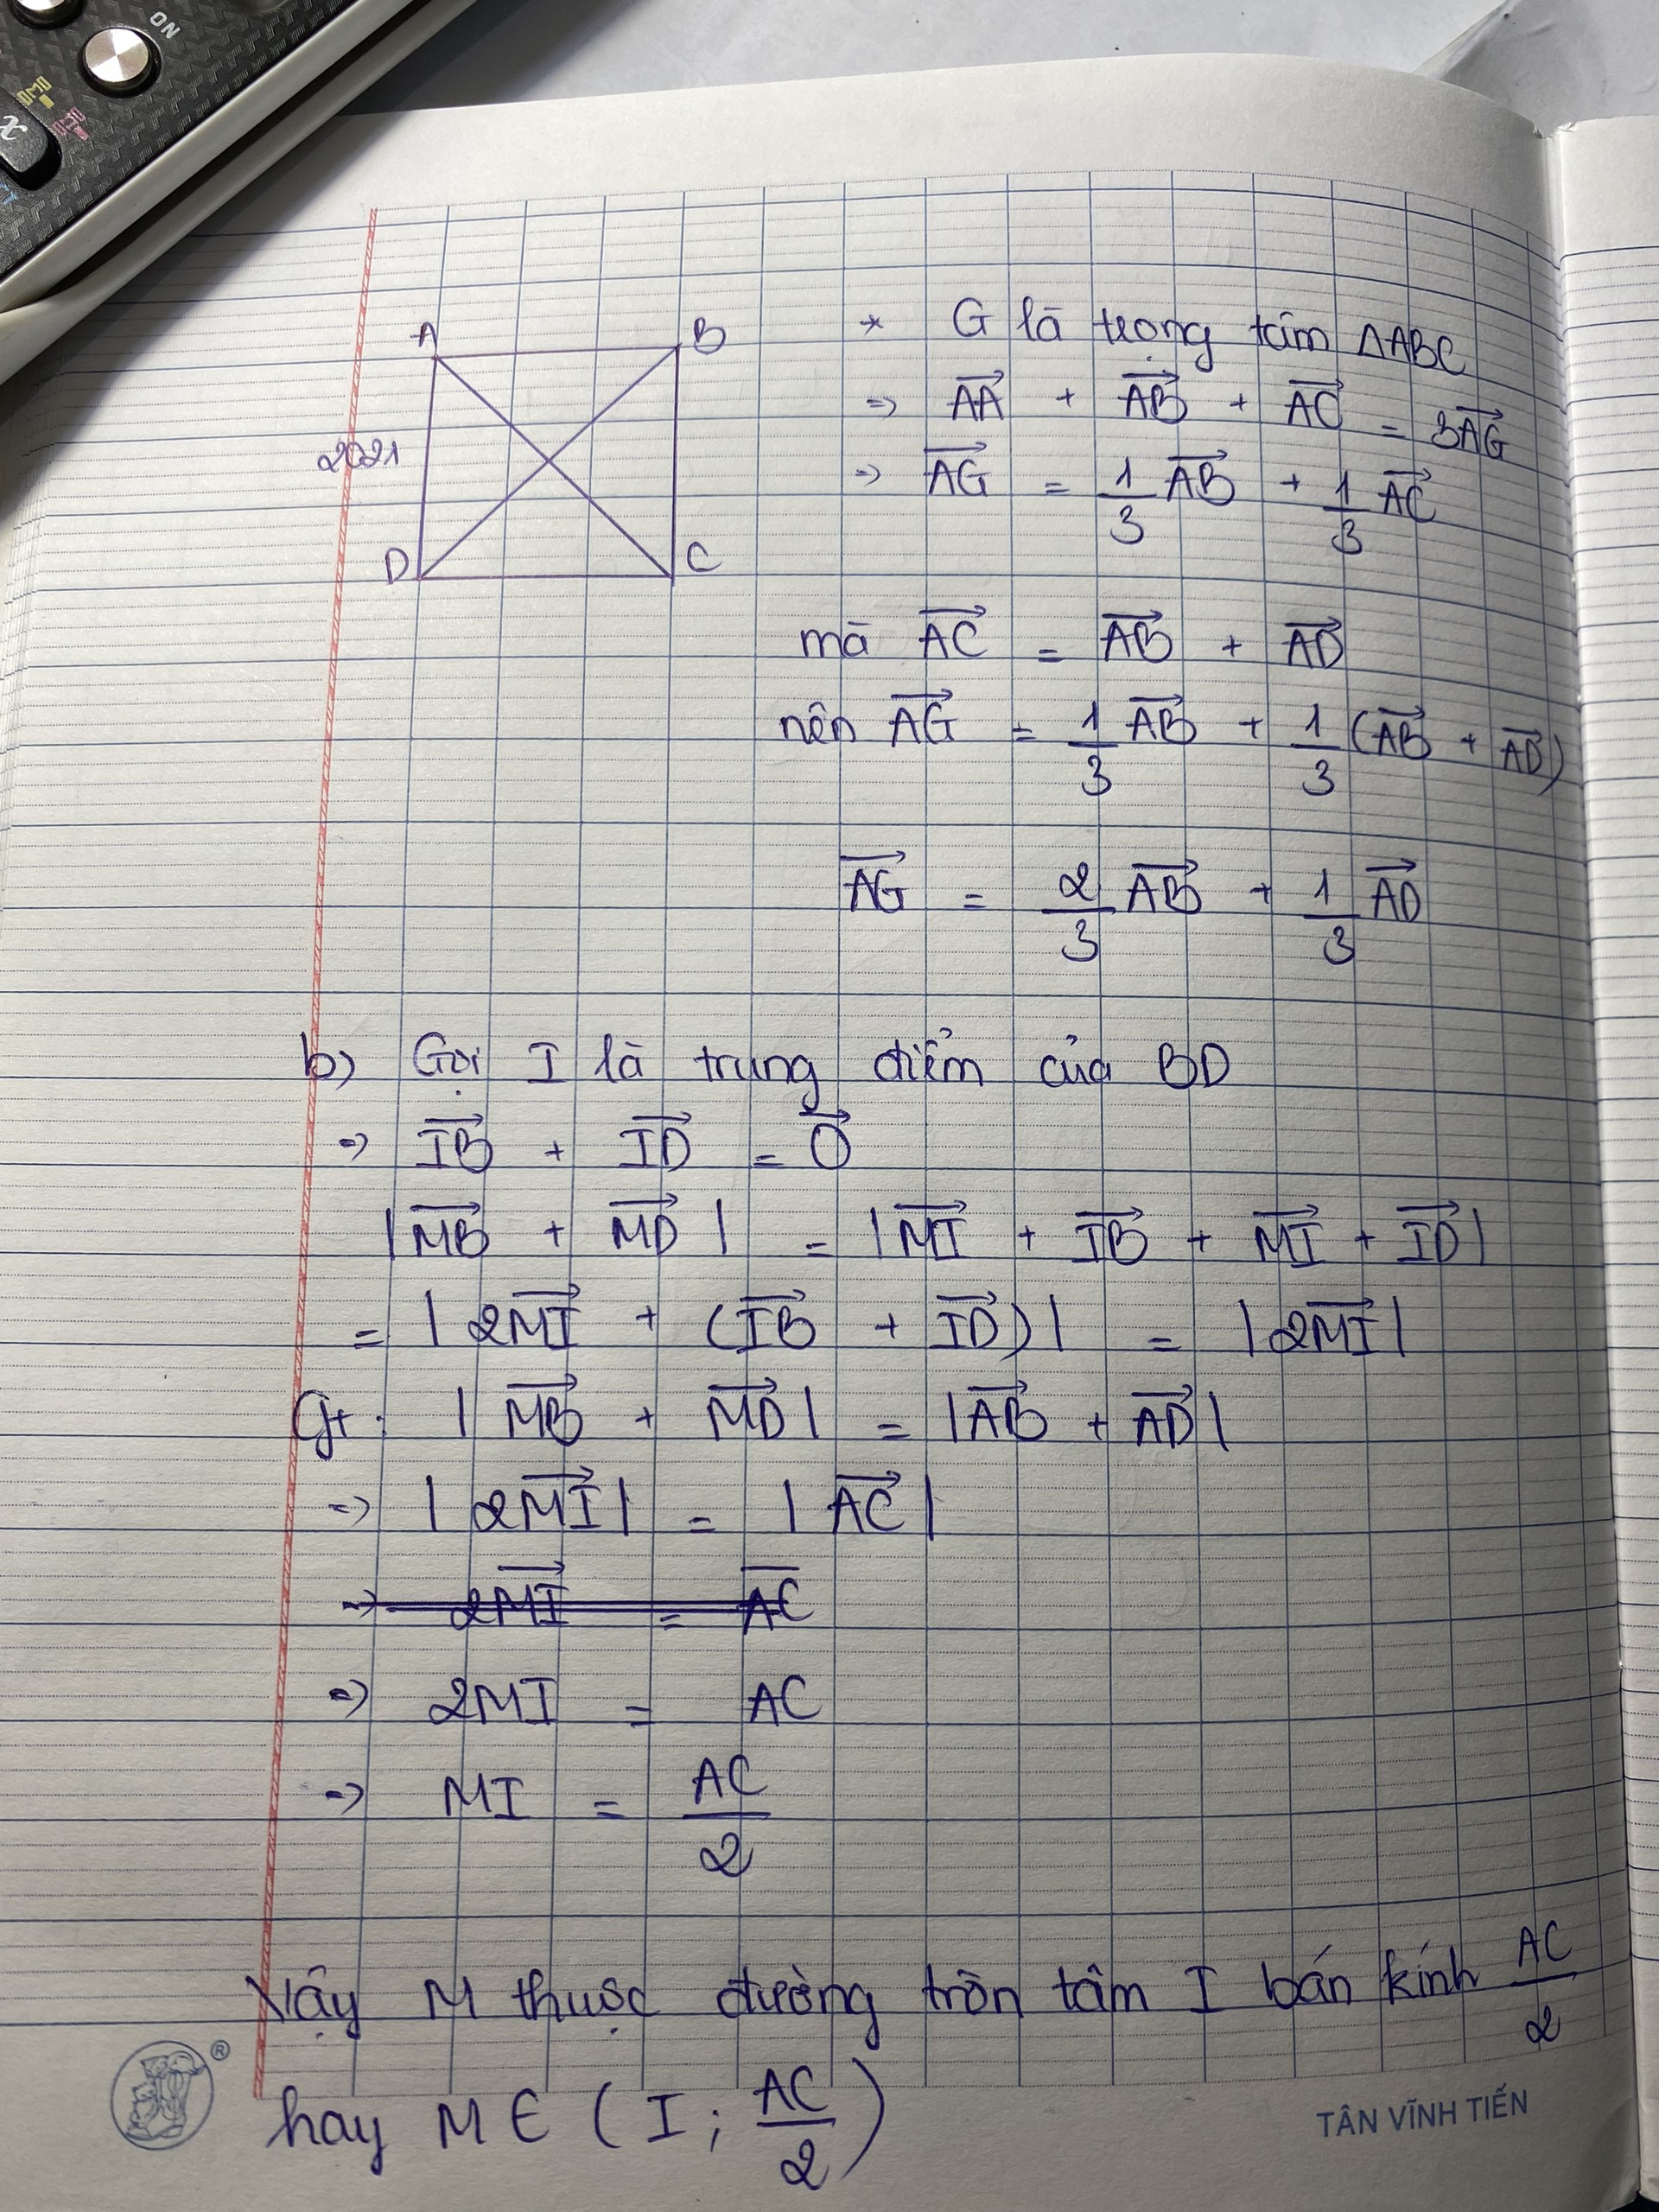 ON
x
A
B
2021
D
C
* G là trọng tâm ΔABC
=> AA→ + AB→ + AC→ = 3AG→
=> AG→ = 1/3 AB→ + 1/3 AC→
mà AC→ = AB→ + AD→
nên AG→ = 1/3 AB→ + 1/3 (AB→ + AD→)
AG→ = 2/3 AB→ + 1/3 AD→
b) Gọi I là trung điểm của BD
=> IB→ + ID→ = 0→
|MB→ + MD→| = |MI→ + IB→ + MI→ + ID→|
= |2MI→ + (IB→ + ID→)| = |2MI→|
Gt: |MB→ + MD→| = |AB→ + AD→|
=> |2MI→| = |AC→|
=> 2MI→ = AC
=> 2MI = AC
=> MI = AC/2
Vậy M thuộc đường tròn tâm I bán kính AC/2
hay M ∈ (I ; AC/2)
®
TÂN VĨNH TIẾN